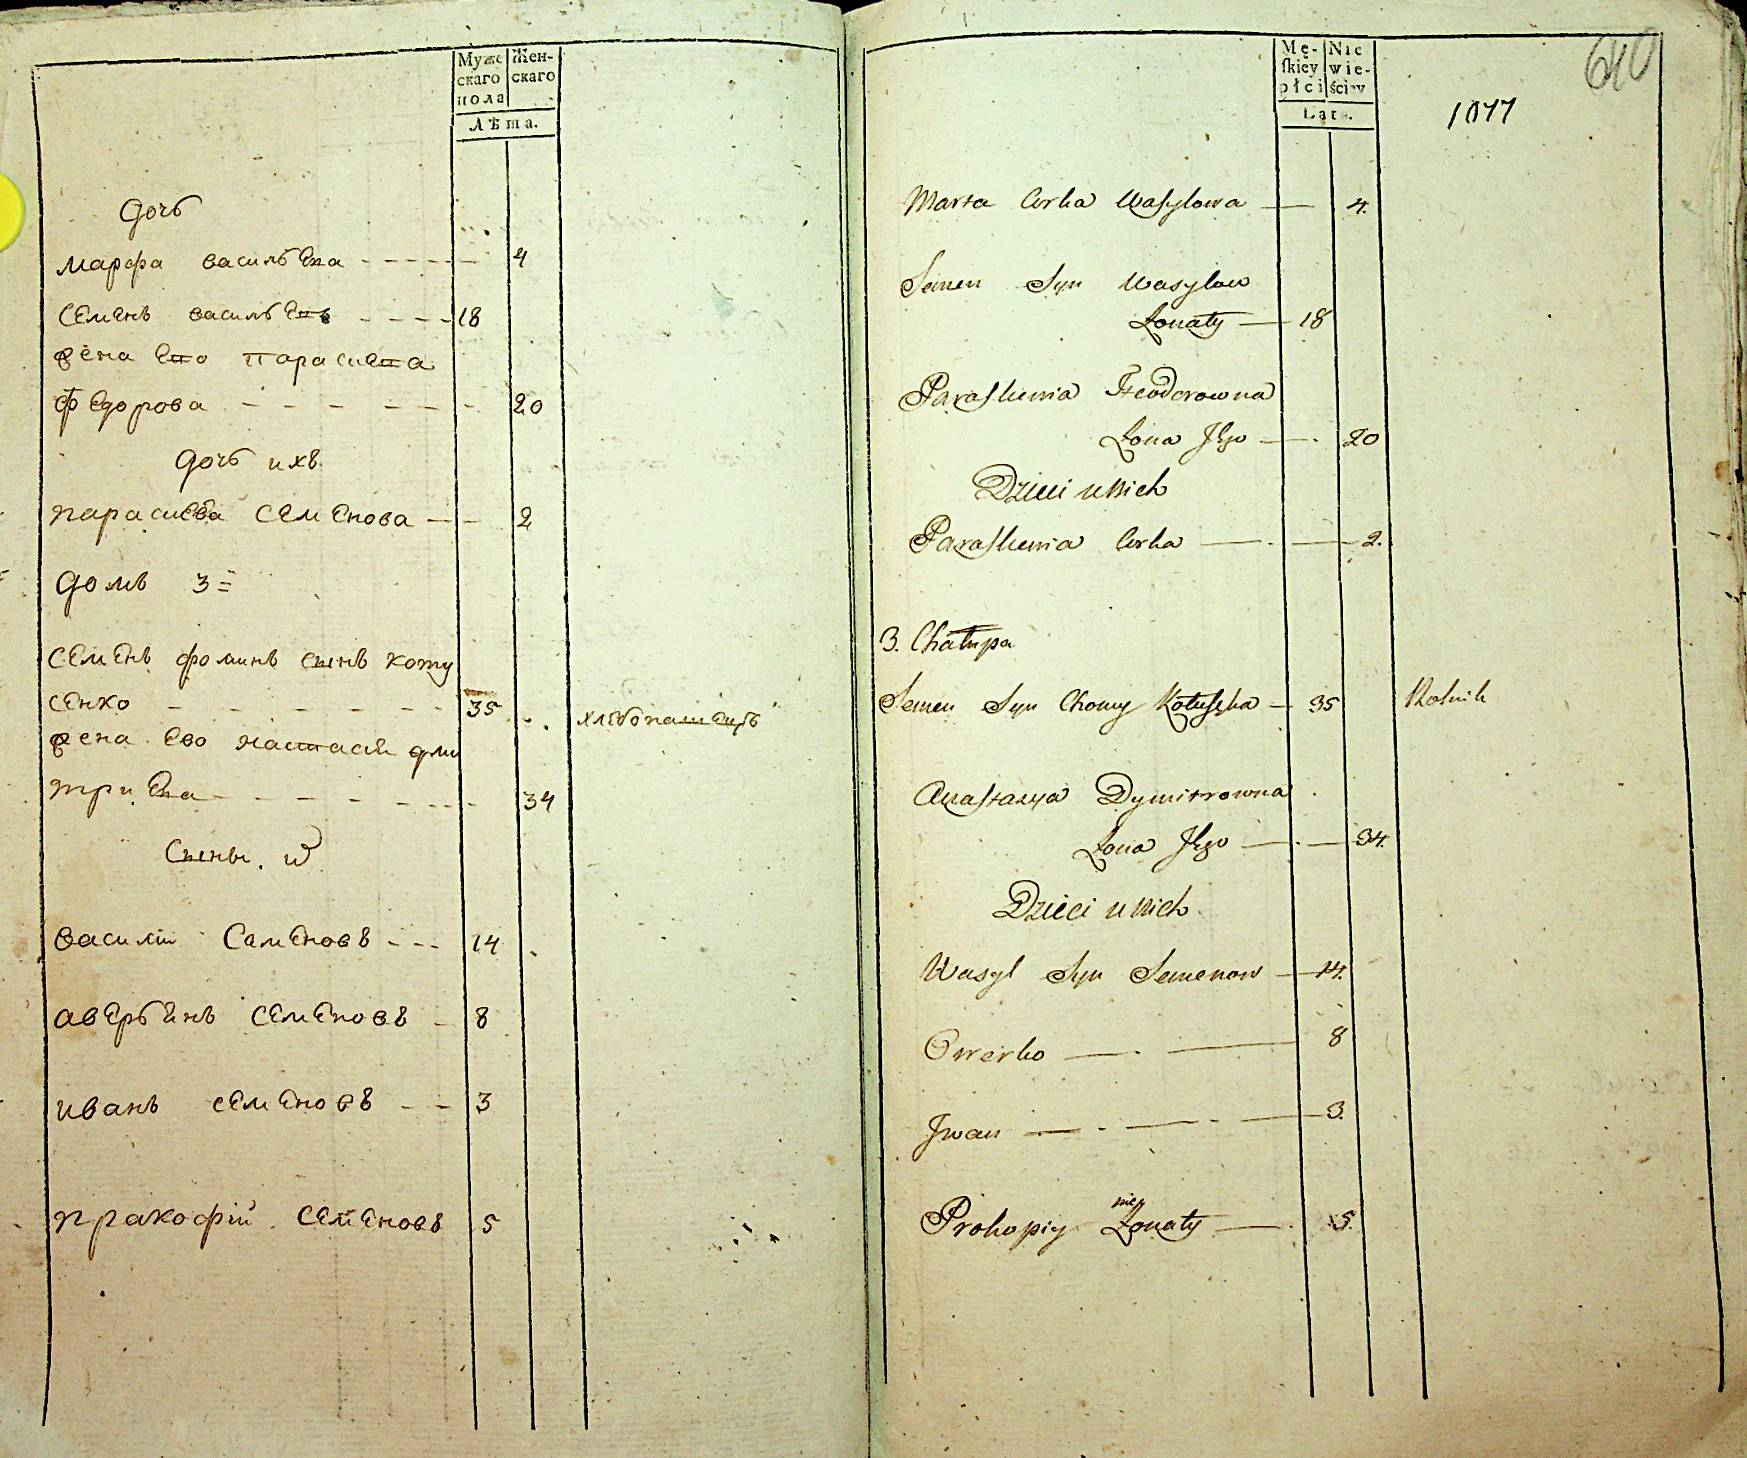 Муже
скаго
пола
Жен-
скаго
Лѣта.
дочь
марфа васильева - - - - - 4
семенъ васильевъ - - - - 18
жена ево парасиева
федорова - - - - - - 20
дочь ихъ
парасиева семенова - - 2
домъ 3=
семенъ фоминъ сынъ коту
сенко - - - - - - 35 хлебопашецъ
жена ево настасия дми
триева - - - - - - - 34
Сыны. и
василии Саменовъ - - - 14
аверьянъ семеновъ - 8
иванъ семеновъ - - 3
пракофий семеновъ 5
Mę-
skiey
płci
Nie
wie-
ściey
Lata.
640
1077
Marta Corka Wasylowa — 4.
Semen Syn Wasylow
Żonaty — 18
Paraskewia Fteodorowna
Żona Jego — 20
Dzieci u Nich
Paraskewia Corka — 2.
3. Chałupa
Semen Syn Chomy Kotuszka — 35 Rolnik
Anastazya Dymitrowna
Żona Jego — 34.
Dzieci u Nich
Wasyl Syn Semenow — 14.
Owerko — 8
Jwan — 3.
nie
Prokopiy Żonaty — 5.